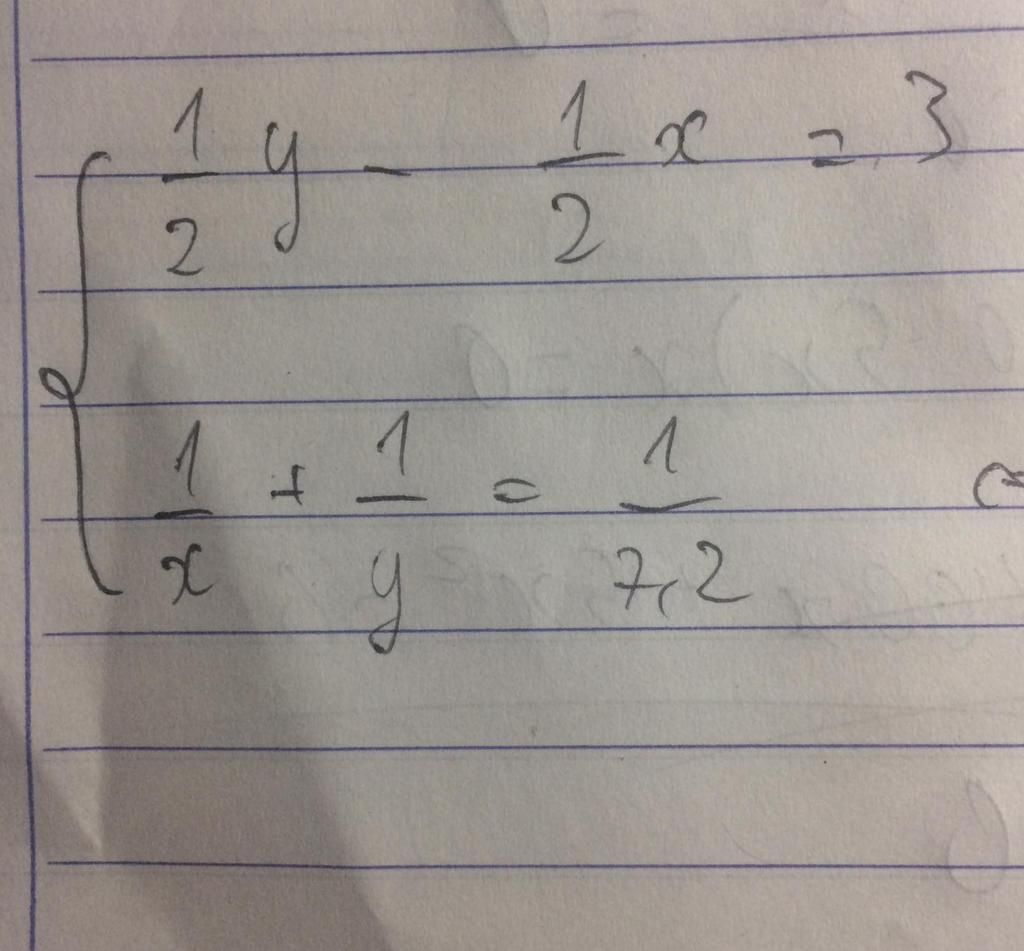 { 1/2 y - 1/2 x = 3
1/x + 1/y = 1/7,2